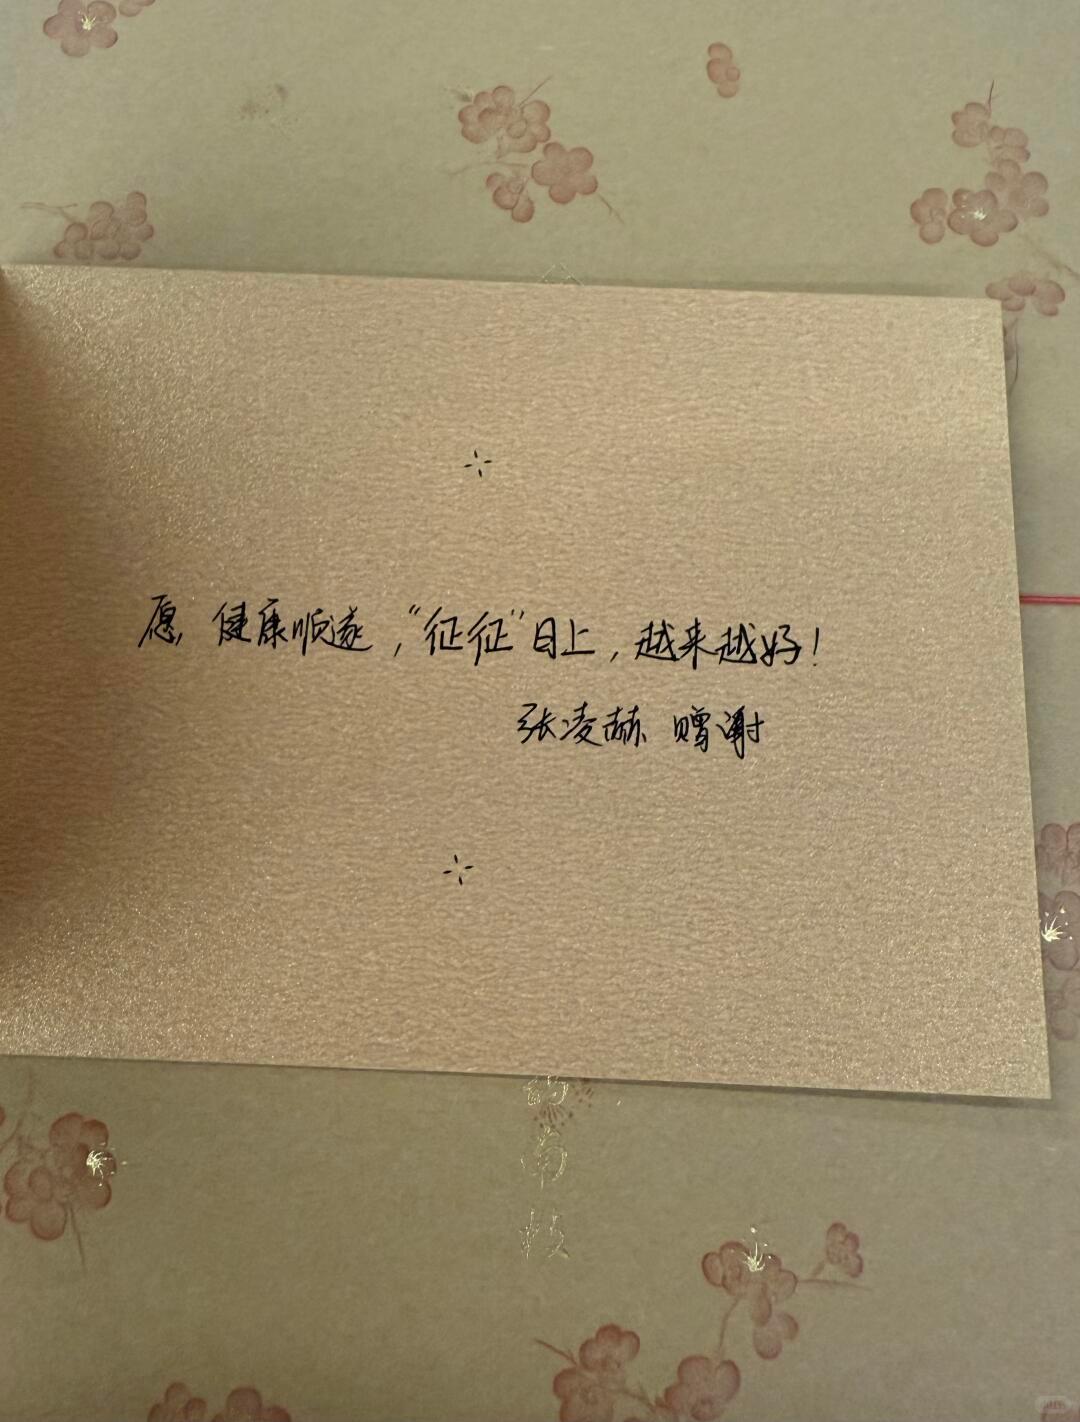 愿 健康顺遂，“征征”日上，越来越好！
张凌赫 赠谢
南
枝